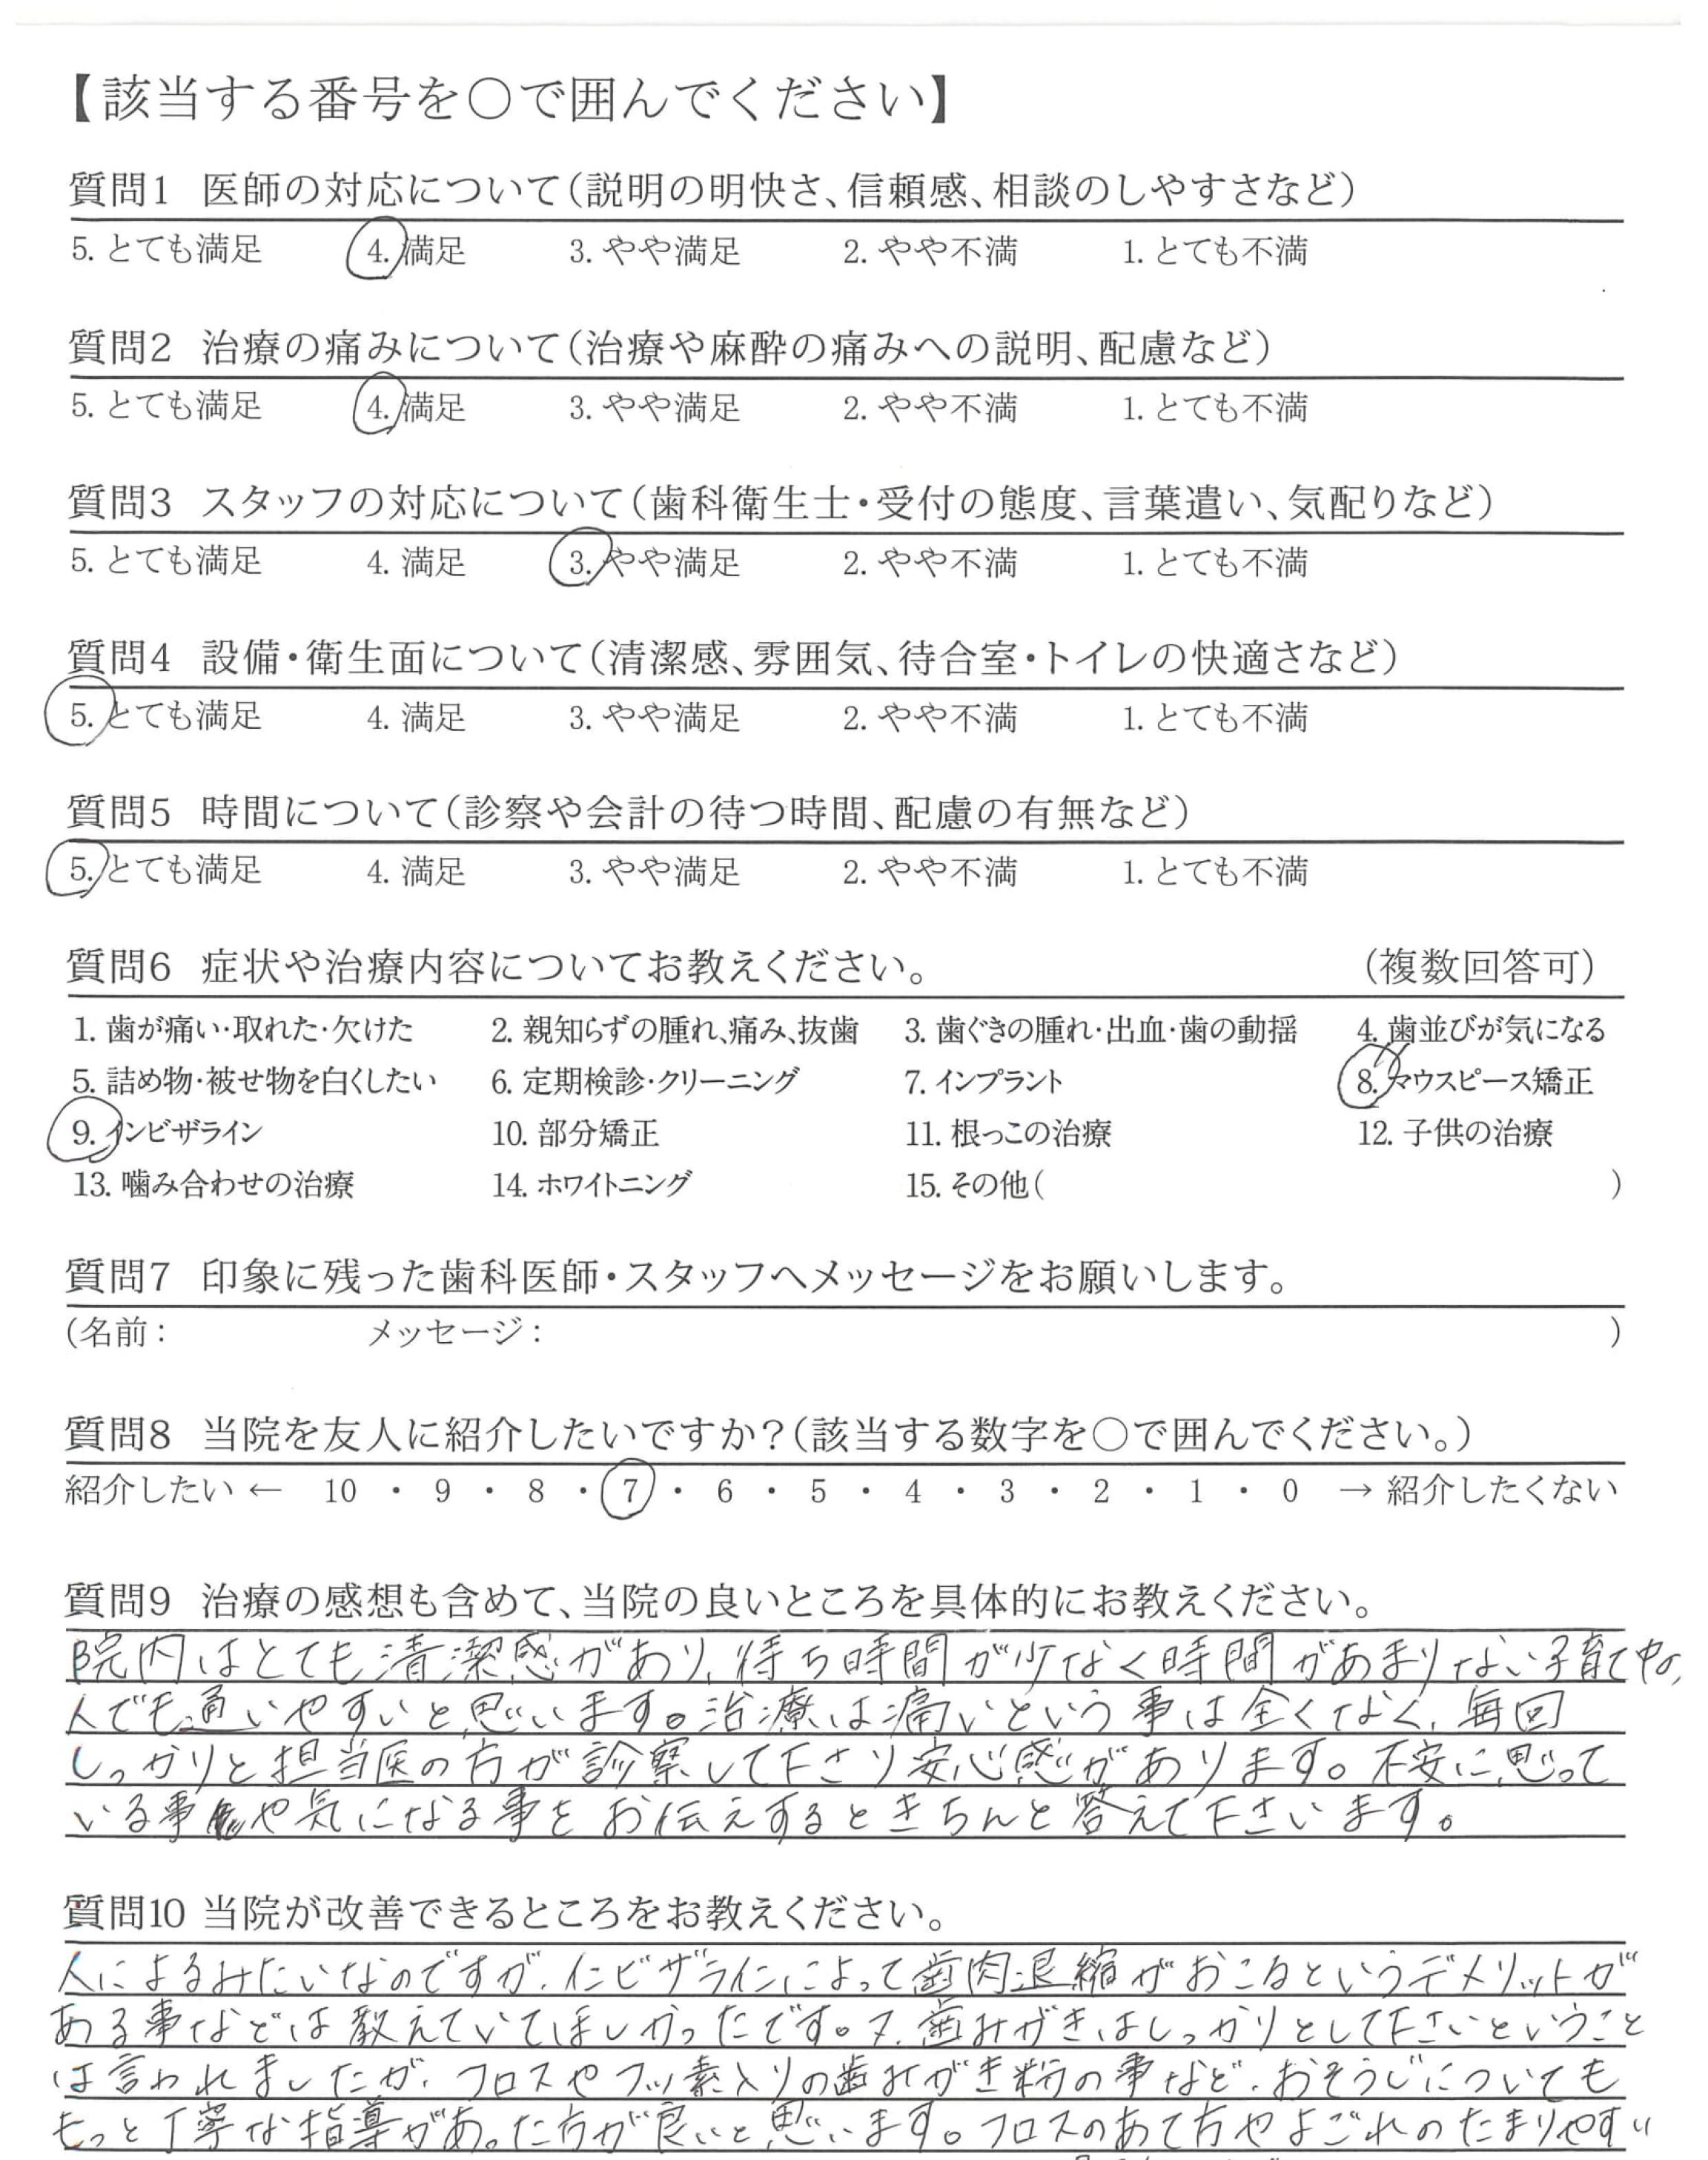 【該当する番号を○で囲んでください】
質問1 医師の対応について(説明の明快さ、信頼感、相談のしやすさなど)
5. とても満足 4. 満足 3. やや満足 2. やや不満 1. とても不満
質問2 治療の痛みについて(治療や麻酔の痛みへの説明、配慮など)
5. とても満足 4. 満足 3. やや満足 2. やや不満 1. とても不満
質問3 スタッフの対応について(歯科衛生士・受付の態度、言葉遣い、気配りなど)
5. とても満足 4. 満足 3. やや満足 2. やや不満 1. とても不満
質問4 設備・衛生面について(清潔感、雰囲気、待合室・トイレの快適さなど)
5. とても満足 4. 満足 3. やや満足 2. やや不満 1. とても不満
質問5 時間について(診察や会計の待つ時間、配慮の有無など)
5. とても満足 4. 満足 3. やや満足 2. やや不満 1. とても不満
質問6 症状や治療内容についてお教えください。 (複数回答可)
1. 歯が痛い・取れた・欠けた 2. 親知らずの腫れ、痛み、抜歯 3. 歯ぐきの腫れ・出血・歯の動揺 4. 歯並びが気になる
5. 詰め物・被せ物を白くしたい 6. 定期検診・クリーニング 7. インプラント 8. マウスピース矯正
9. インビザライン 10. 部分矯正 11. 根っこの治療 12. 子供の治療
13. 噛み合わせの治療 14. ホワイトニング 15. その他( )
質問7 印象に残った歯科医師・スタッフへメッセージをお願いします。
(名前: メッセージ: )
質問8 当院を友人に紹介したいですか?(該当する数字を○で囲んでください。)
紹介したい ← 10 ・ 9 ・ 8 ・ 7 ・ 6 ・ 5 ・ 4 ・ 3 ・ 2 ・ 1 ・ 0 → 紹介したくない
質問9 治療の感想も含めて、当院の良いところを具体的にお教えください。
院内はとても清潔感があり、待ち時間が少なく時間があまりない子育て中の
人でも通いやすいと思います。治療は痛いという事は全くなく、毎回
しっかりと担当医の方が診察して下さり安心感があります。不安に思って
いる事や気になる事をお伝えするときちんと答えて下さいます。
質問10 当院が改善できるところをお教えください。
人によるみたいなのですが、インビザラインによって歯肉退縮がおこるというデメリットが
ある事などは教えていてほしかったです。又、歯みがきはしっかりとして下さいということ
は言われましたが、フロスやフッ素入りの歯みがき粉の事など、おそうじについても
もっと丁寧な指導があった方が良いと思います。フロスのあて方やよごれのたまりやすい